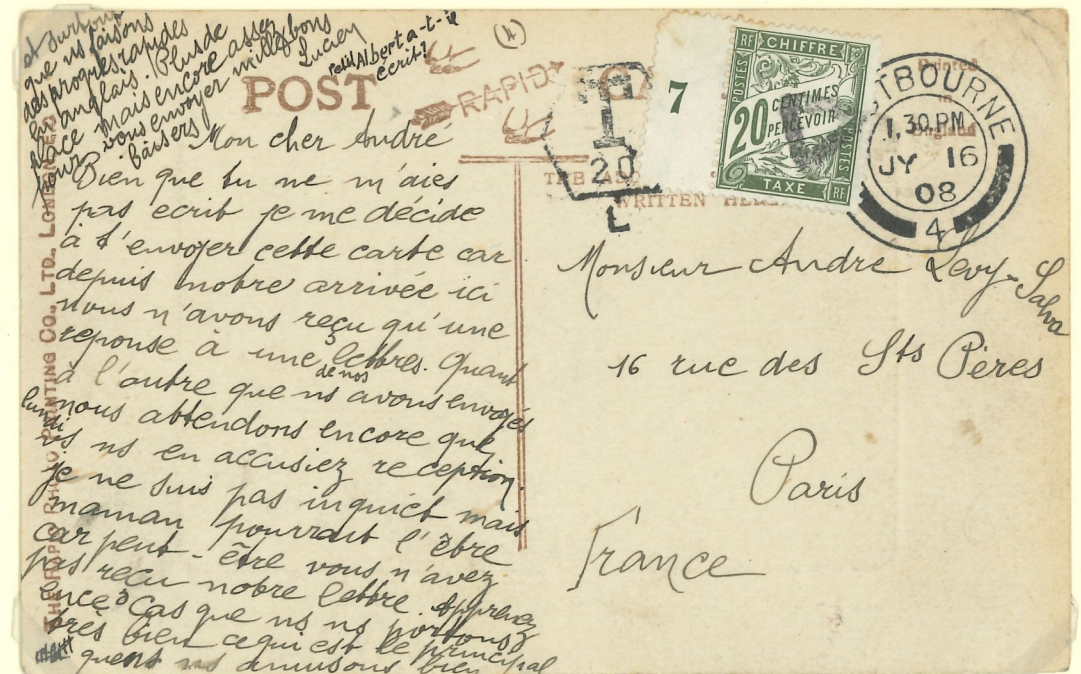 et surtout
que ns faisons
des progrès rapides
en anglais. Plus de
place mais encore assez
pour vous envoyer mille bons
baisers Lucien
Petit Albert a-t-il
écrit?
(4)
POST
RAPID
T
20
L
7
RF CHIFFRE
POSTES
20 CENTIMES
A PERCEVOIR
POSTES
TAXE RF
Printed
in
England
STBOURNE
1.30 PM
JY 16
08
4
WRITTEN HERE
THE RAPID PHOTO PRINTING CO., LTD., LONDON
Mon cher André
Bien que tu ne m'aies
pas ecrit je me décide
à t'envoyer cette carte car
depuis notre arrivée ici
nous n'avons reçu qu'une
reponse à une de nos lettres. Quant
à l'autre que ns avons envoyés
lundi nous attendons encore que
vs ns en accusiez reception
je ne suis pas inquiet mais
maman pourrait l'être
car peut-être vous n'avez
pas reçu notre lettre. Apprenez
en ce cas que ns ns portons
très bien ce qui est le principal
que ns ns amusons bien
Monsieur André Levy-Salva
16 rue des Sts Pères
Paris
France